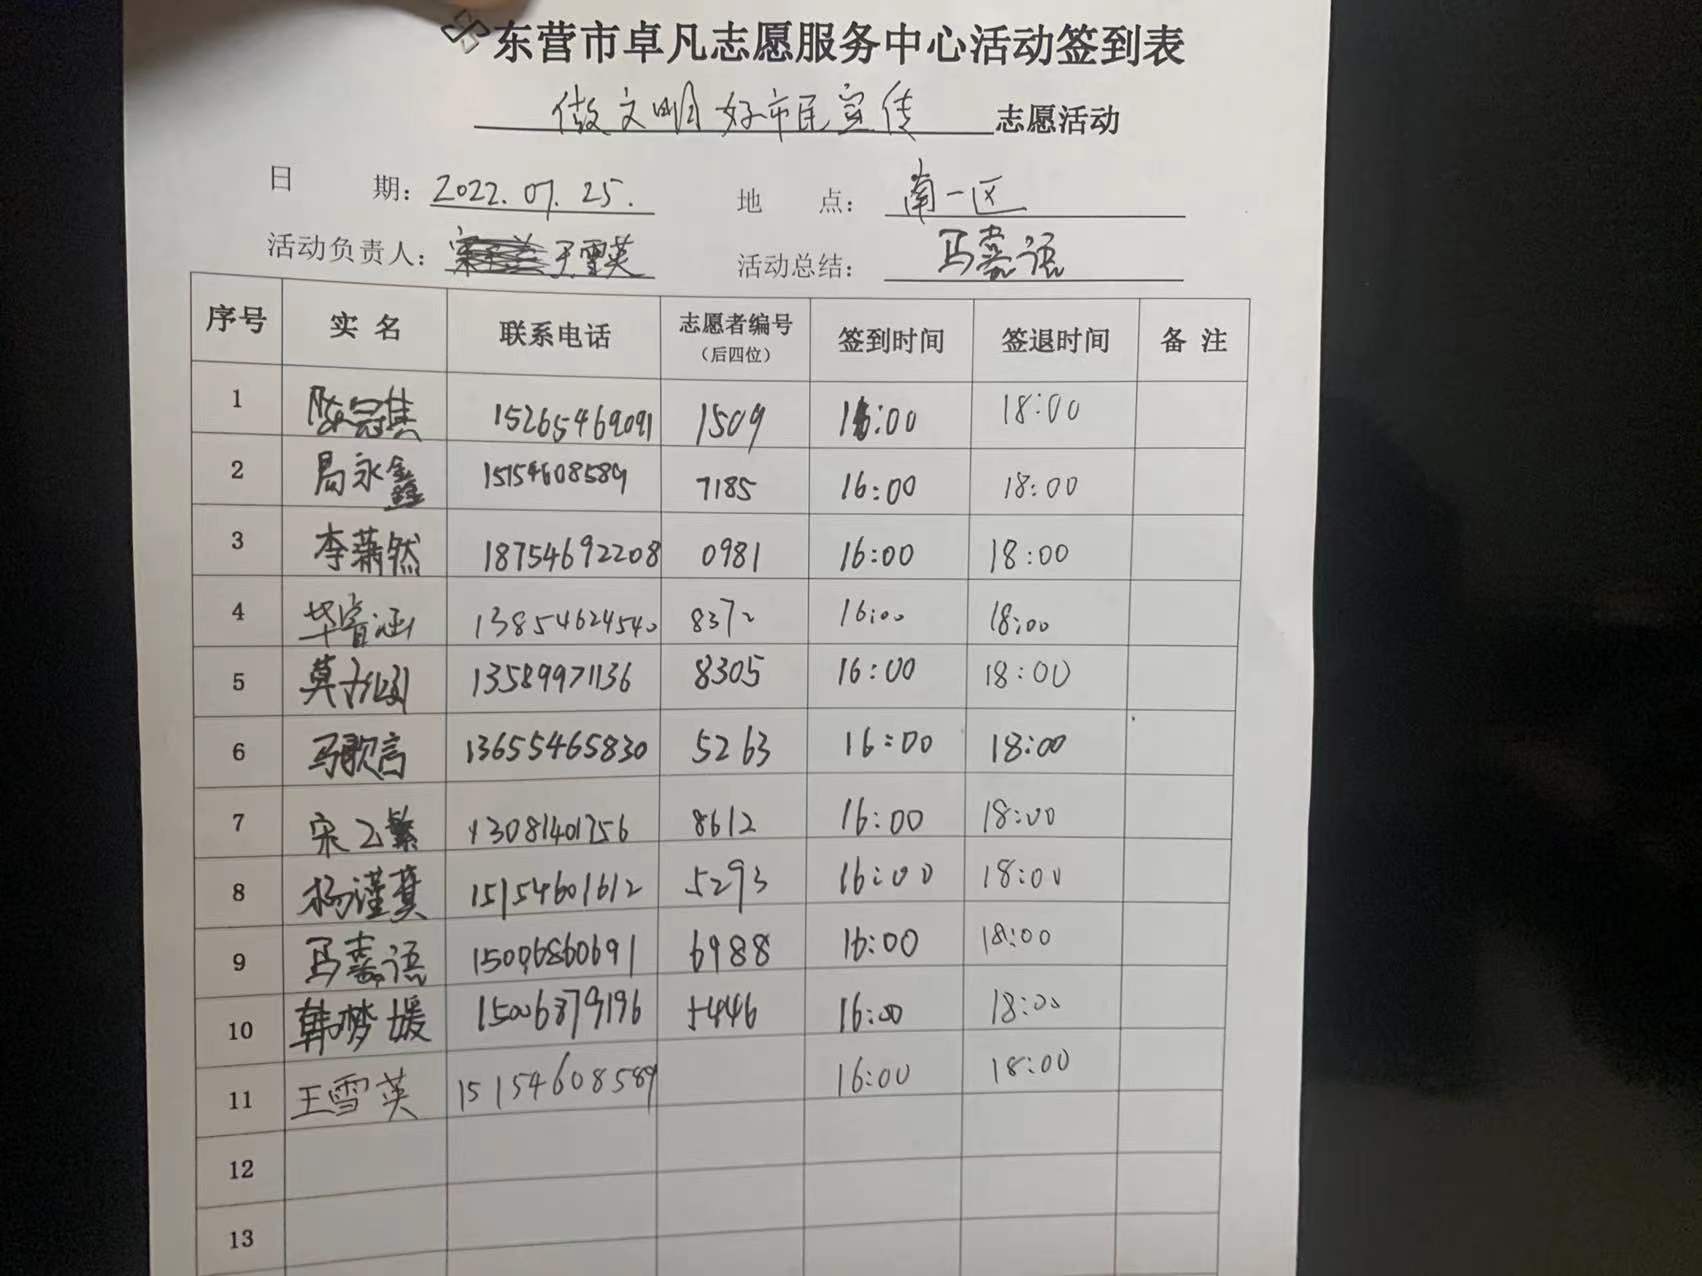 东营市卓凡志愿服务中心活动签到表
做文明好市民宣传 志愿活动
日 期: 2022.07.25. 地 点: 南一区
活动负责人: 王雪英 活动总结: 马嘉语
序号 实 名 联系电话 志愿者编号 (后四位) 签到时间 签退时间 备 注
1 陈冠隽 15265469091 1509 16:00 18:00
2 局永鑫 15154608589 7185 16:00 18:00
3 李蕅然 18754692208 0981 16:00 18:00
4 华睿涵 13854624540 8372 16:00 18:00
5 莫 13589971136 8305 16:00 18:00
6 马歌言 13655465830 5263 16:00 18:00
7 宋乙繁 13081401756 8612 16:00 18:00
8 杨谨萁 15154601612 5293 16:00 18:00
9 马嘉语 15006860691 6988 16:00 18:00
10 韩梦媛 15006879196 5446 16:00 18:00
11 王雪英 15154608589 16:00 18:00
12
13